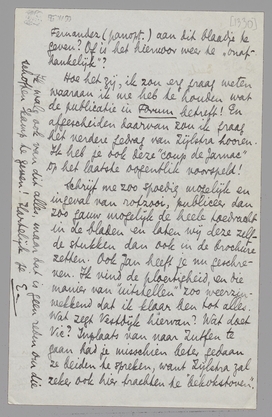 [1930]
Fernandez (panopt.) aan dit blaadje te
geven? Of is het hiervoor weer de "onaf-
hankelijk"?
Hoe het zij, ik zou erg graag weten
waaraan ik me heb te houden wat
de publicatie in Forum betreft! En
afgescheiden daarvan zou ik graag
het verdere gedrag van Zijlstra hooren.
Ik heb je ook deze "coup de Jarnac"
op het laatste oogenblik voorspeld!
Schrijf me zoo spoedig mogelijk en
ingeval van rotzooi, publiceer dan
zoo gauw mogelijk de heele toedracht
in de bladen en laten wij deze zelf-
de stukken dan ook in de brochure
zetten. Ook Jan heeft je nu geschre-
ven. Ik vind de ploertigheid, en die
manier van "uitstellen" zoo weerzin-
wekkend dat ik klaar ben tot alles.
Wat zegt Vestdijk hiervan? Wat doet
Vic? Inplaats van naar Zutfen te
gaan had je misschien beter gedaan
ze beiden te spreken, want Zijlstra zal
zeker ook hier trachten te "bekokstoven".
Ik walg ook van dit alles, maar dat is geen reden om die
schoften kamp te geven. Hartelijk je E.